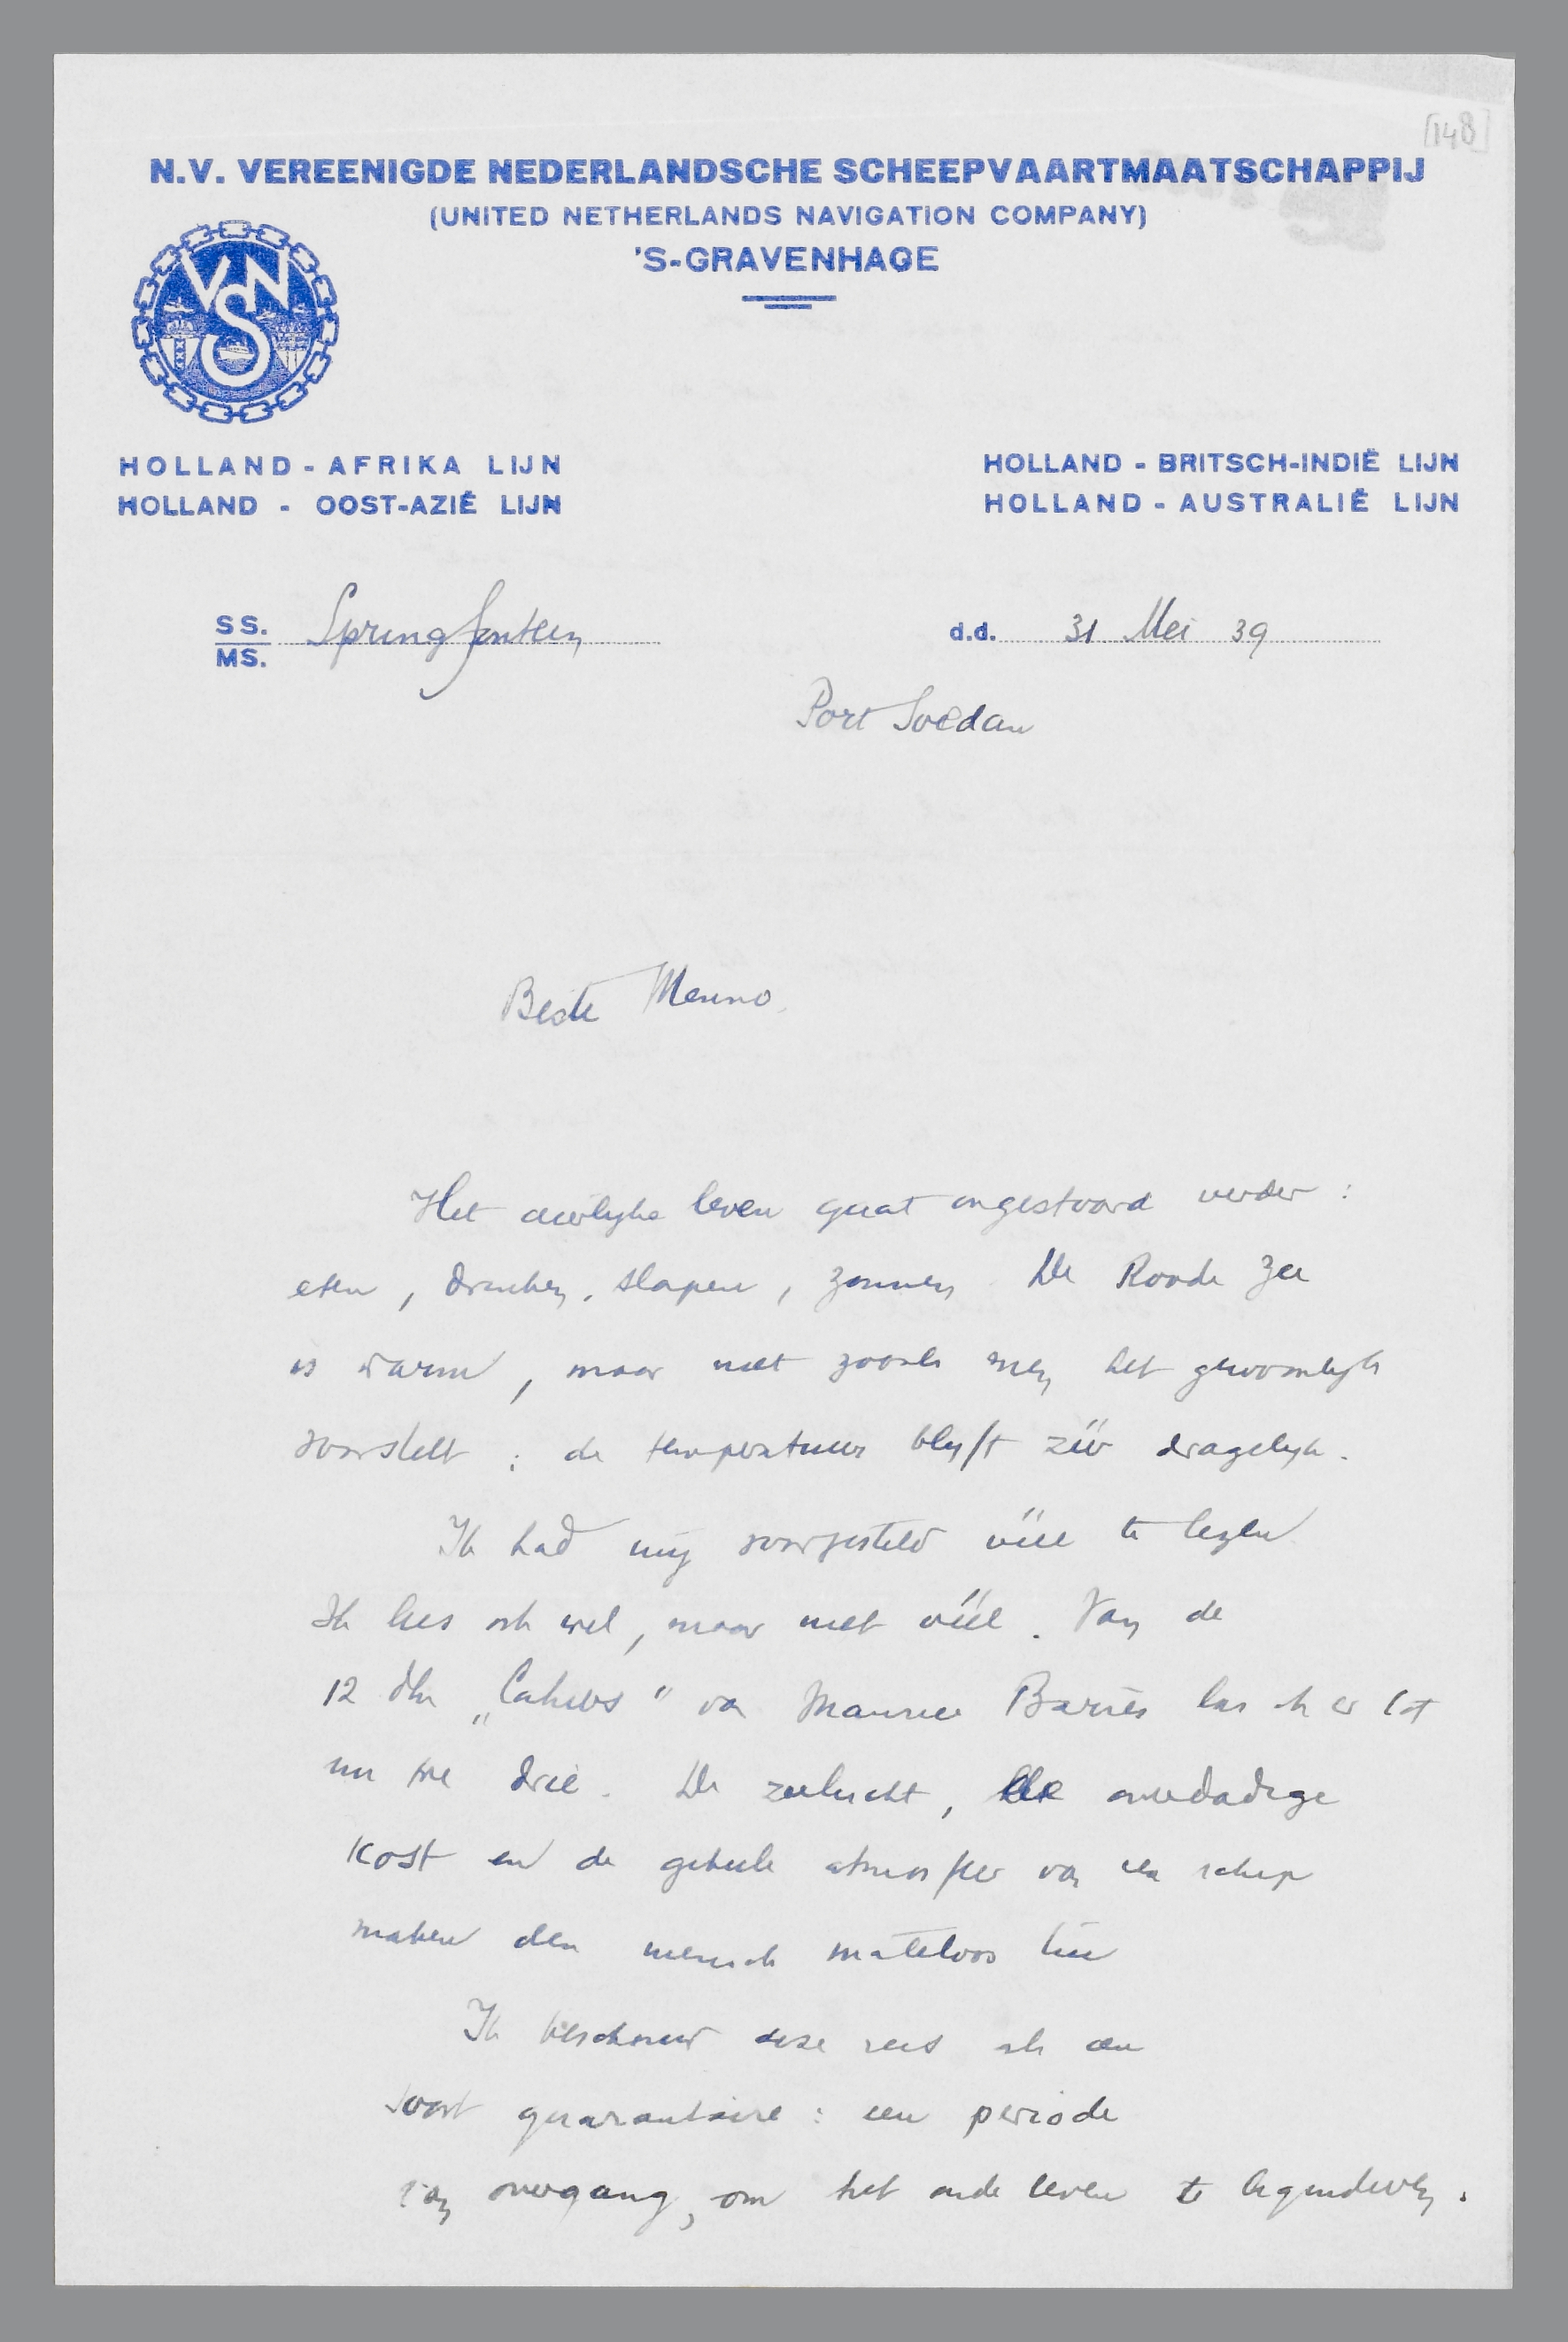 [148]
N.V. VEREENIGDE NEDERLANDSCHE SCHEEPVAARTMAATSCHAPPIJ
(UNITED NETHERLANDS NAVIGATION COMPANY)
'S-GRAVENHAGE
VNS
HOLLAND - AFRIKA LIJN
HOLLAND - OOST-AZIË LIJN
HOLLAND - BRITSCH-INDIË LIJN
HOLLAND - AUSTRALIË LIJN
SS. Springfontein
MS.
d.d. 31 Mei 39
Port Soedan
Beste Menno,
Het leven gaat ongestoord verder :
eten, drinken, slapen, zonnen. De Roode Zee
is warm, maar niet zooals men het gewoonlijk
voorstelt ; de temperatuur blijft zéér dragelijk.
Ik had mij voorgesteld véél te lezen
Ik lees ook wel, maar niet véél. Van de
12 dln „Cahiers" van Maurice Barrès las ik er tot
nu toe drie. De zeelucht, de overdadige
kost en de geheele atmosfeer van een schip
maken den mensch mateloos lui
Ik beschouw deze reis als een
soort quarantaine : een periode
van overgang, om het oude leven te